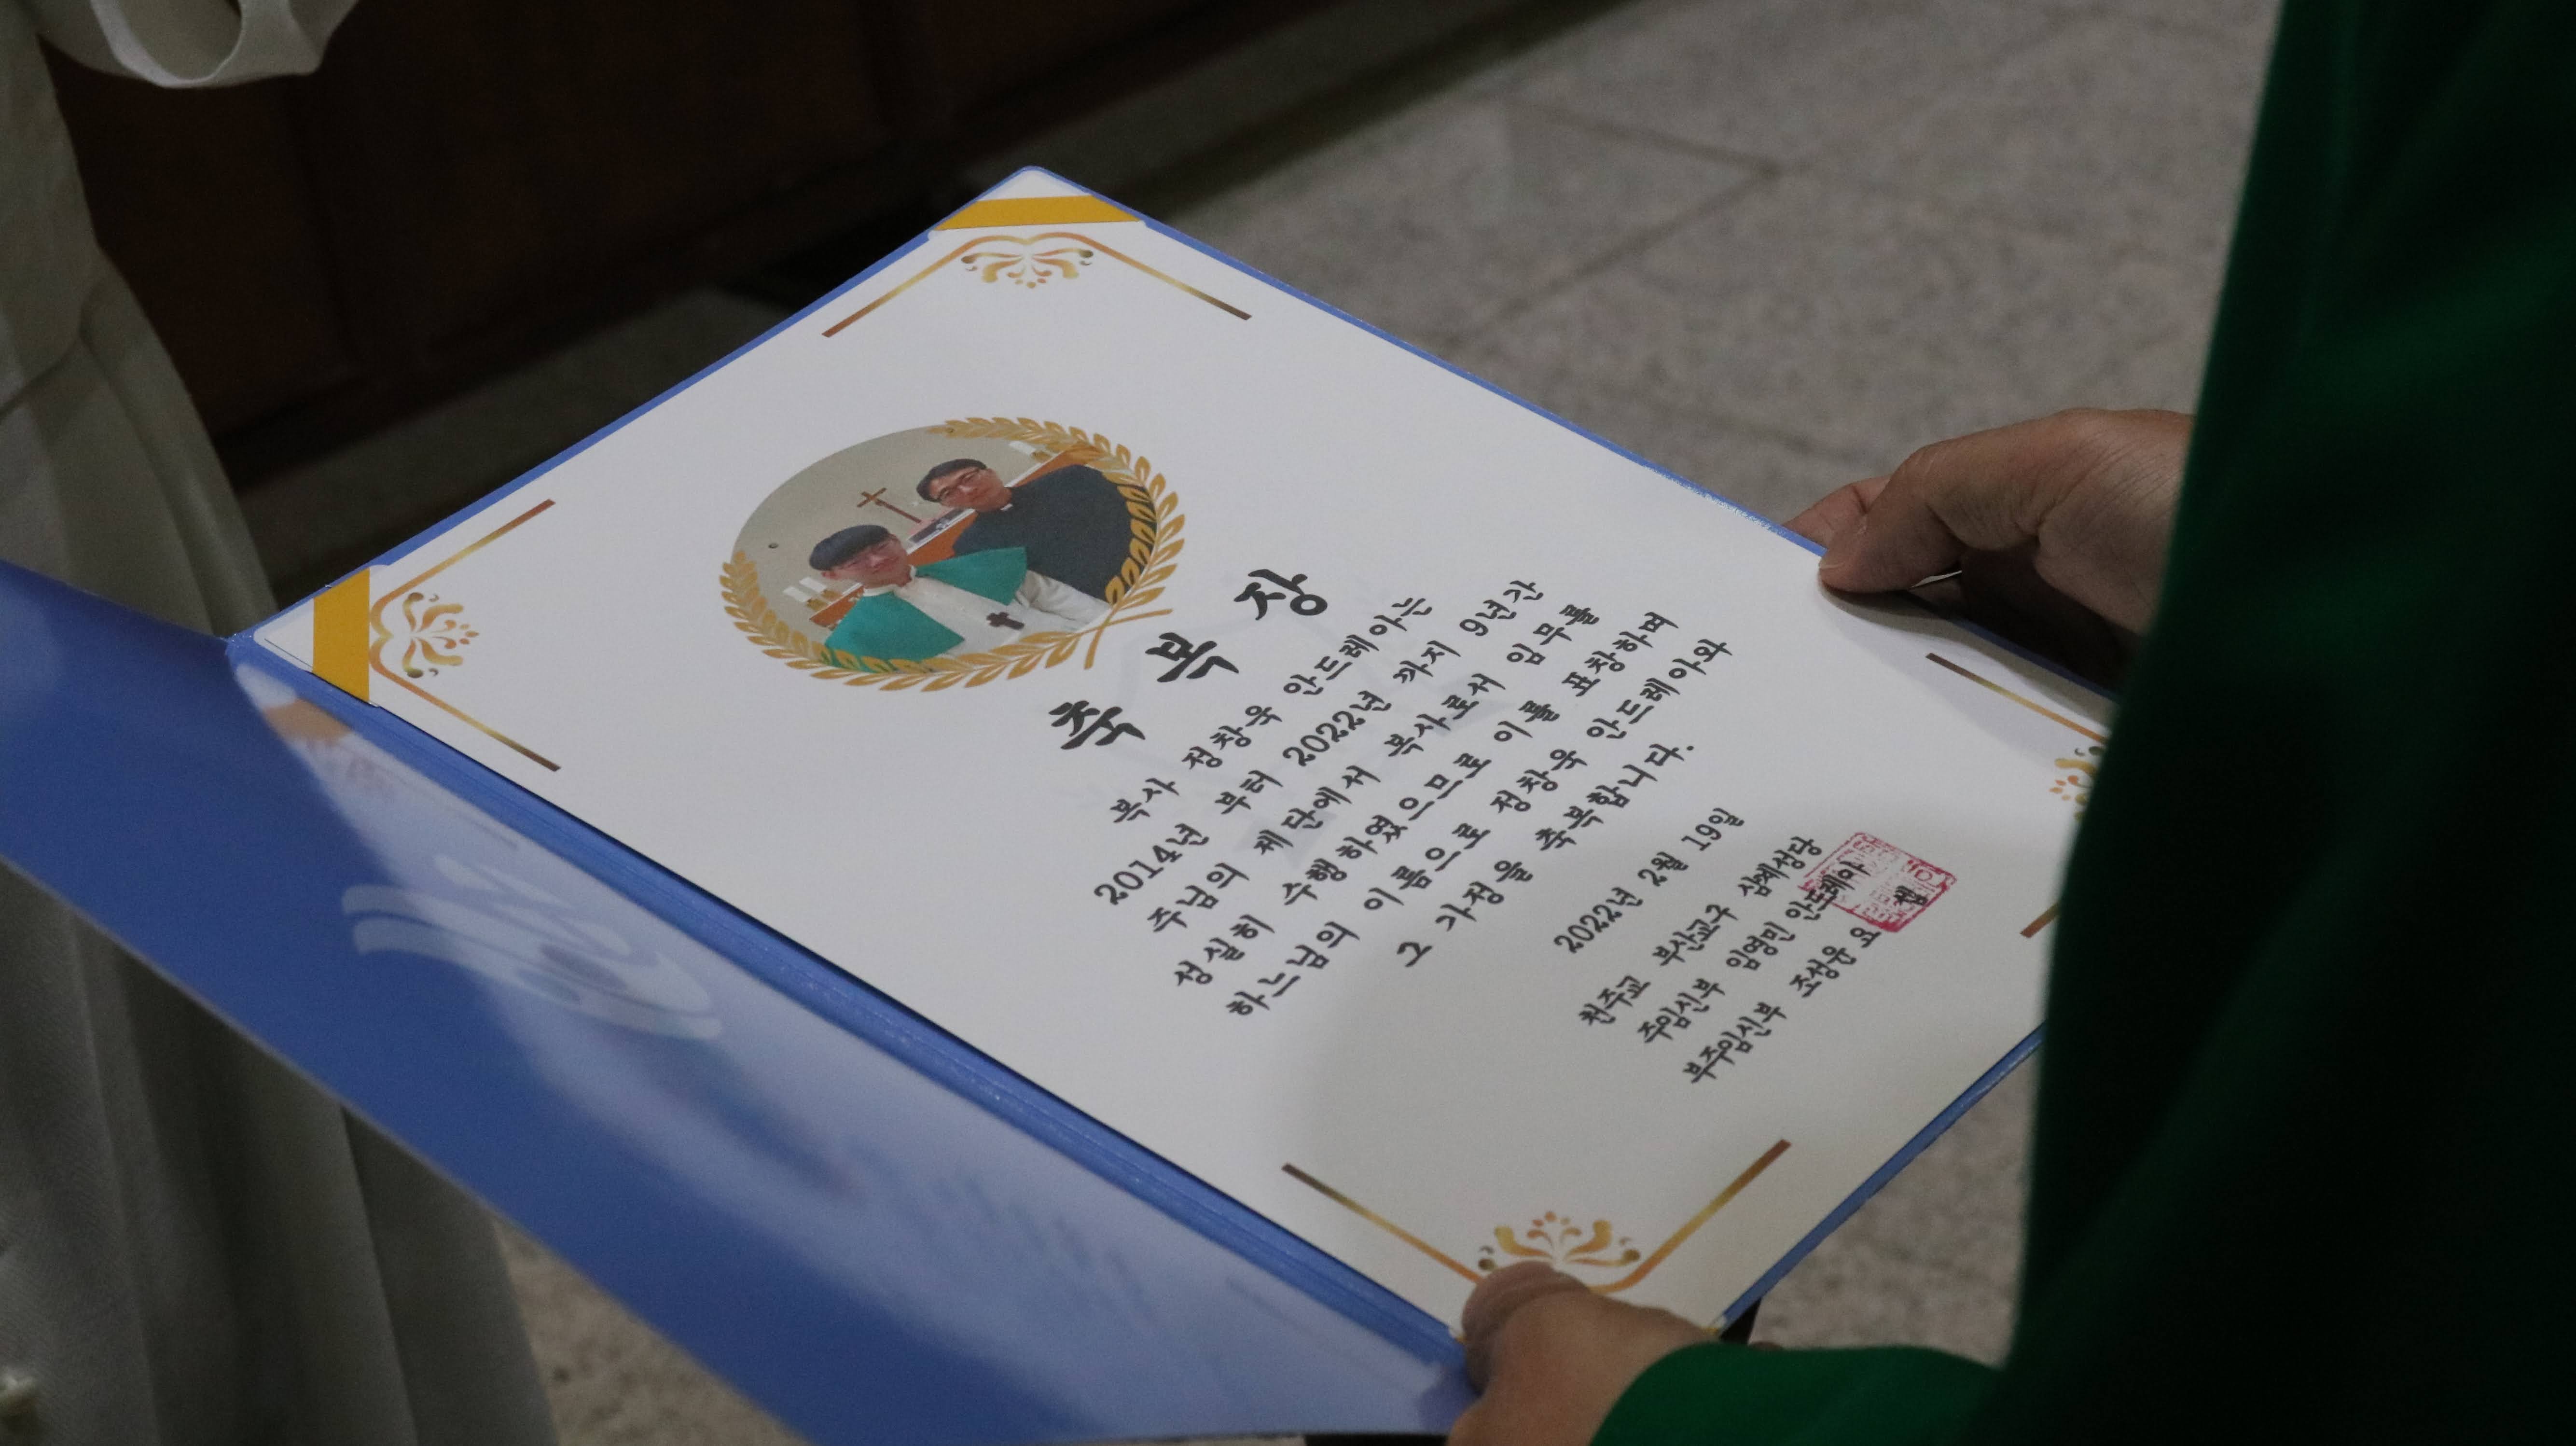 축 복 장
복사 정창욱 안드레아는
2014년 부터 2022년 까지 9년간
주님의 제단에서 복사로서 임무를
성실히 수행하였으므로 이를 표창하며
하느님의 이름으로 정창욱 안드레아와
그 가정을 축복합니다.
2022년 2월 19일
천주교 부산교구 삼계성당
주임신부 임영민 안드레아
부주임신부 조성윤 요셉